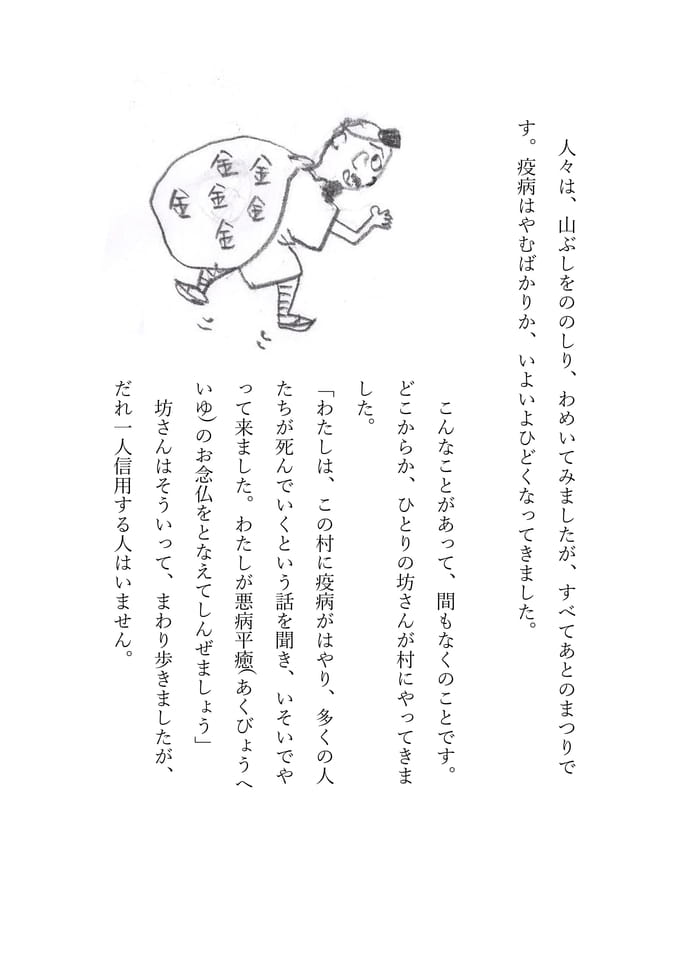 人々は、山ぶしをののしり、わめいてみましたが、すべてあとのまつりで
す。疫病はやむばかりか、いよいよひどくなってきました。
金
金
金
金
金
金
こんなことがあって、間もなくのことです。
どこからか、ひとりの坊さんが村にやってきま
した。
「わたしは、この村に疫病がはやり、多くの人
たちが死んでいくという話を聞き、いそいでや
って来ました。わたしが悪病平癒(あくびょうへ
いゆ)のお念仏をとなえてしんぜましょう」
坊さんはそういって、まわり歩きましたが、
だれ一人信用する人はいません。